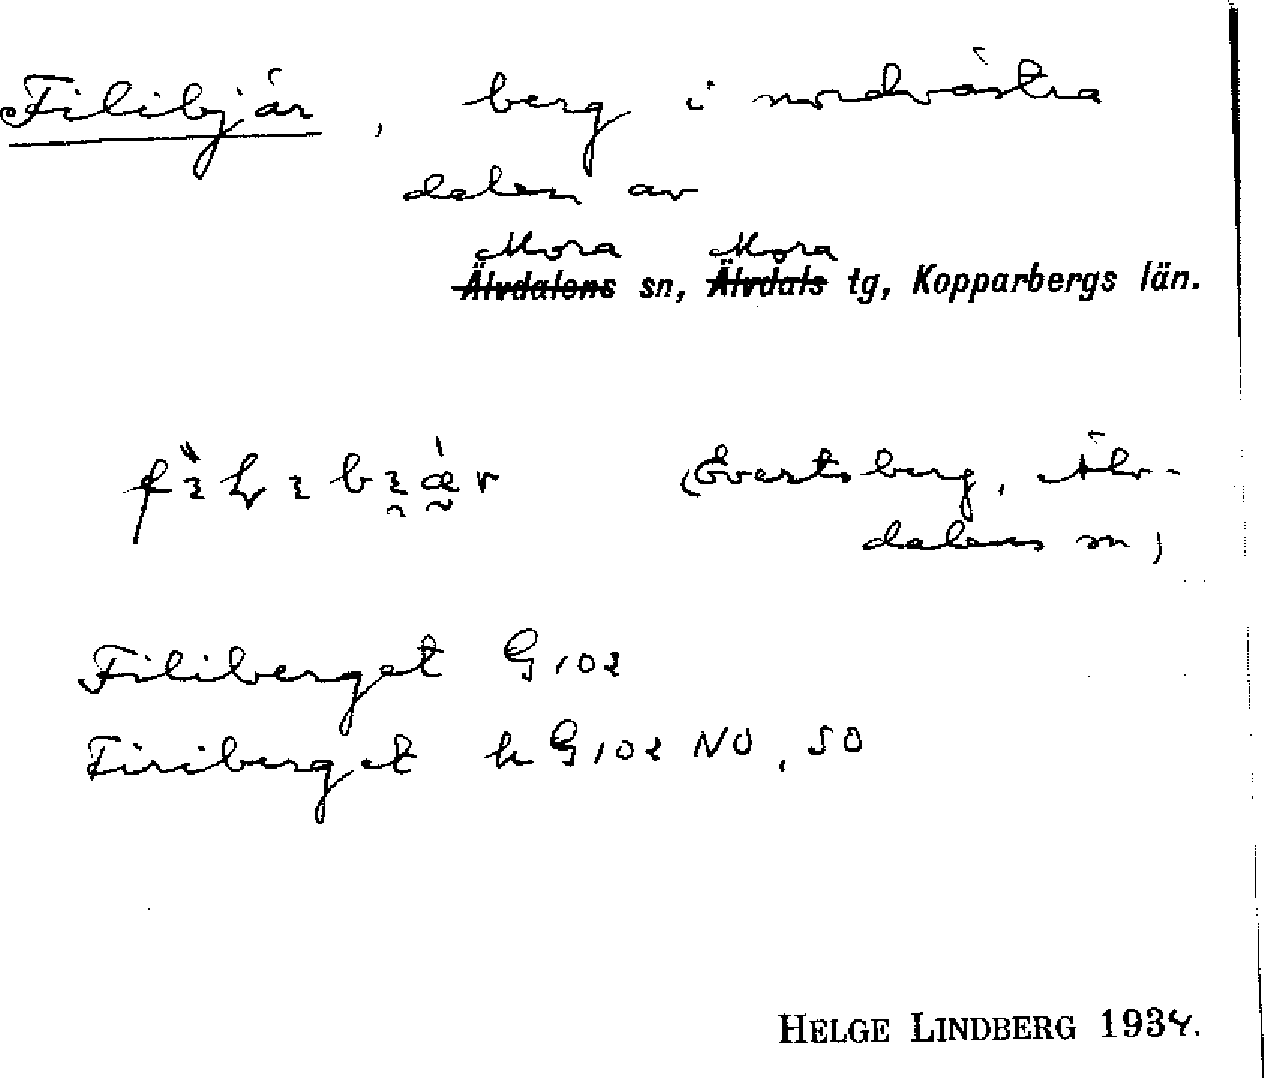 Filibjär, berg i nordvästra
delen av
Mora Mora
Älvdalens sn, Älvdals tg, Kopparbergs län.
(Evertsberg, Älv-
dalens sn)
Filiberget G 102
Firiberget k G 102 NO, SO
HELGE LINDBERG 1934.